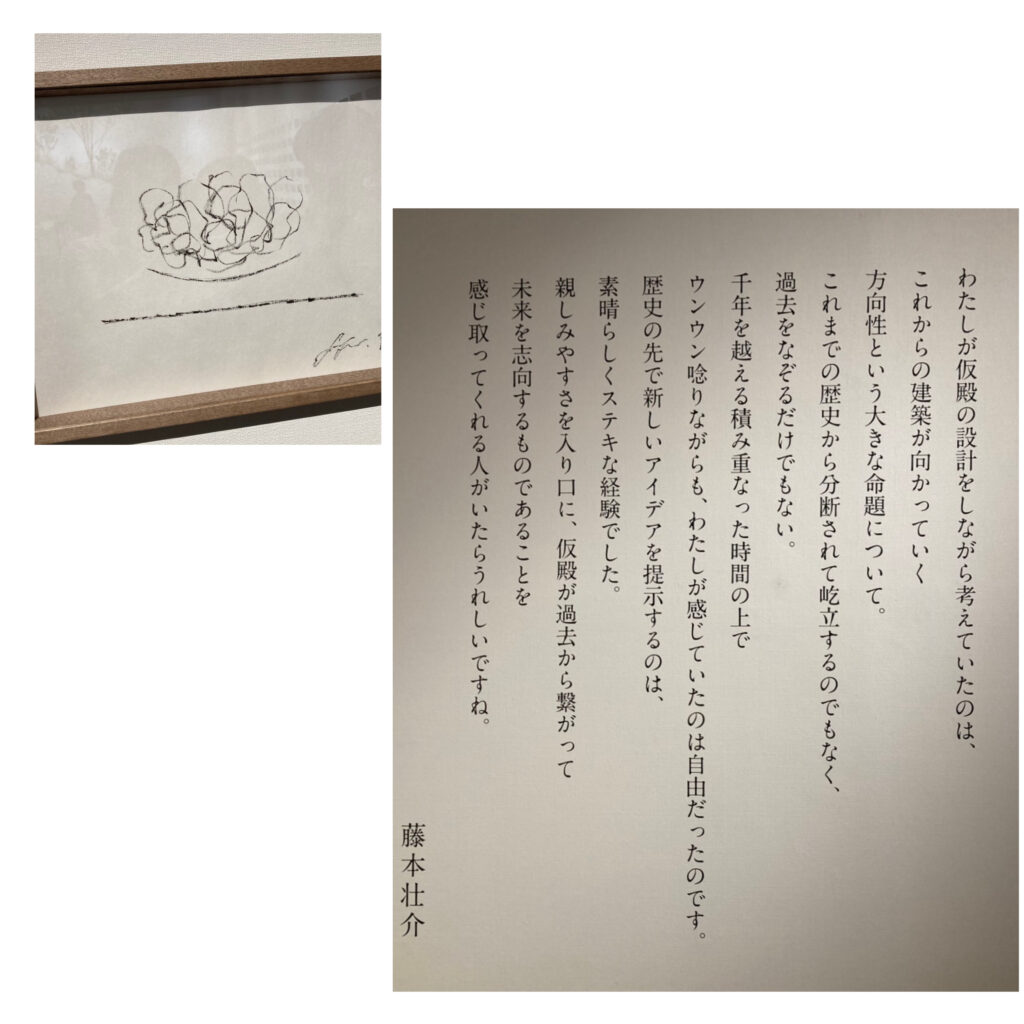 わたしが仮殿の設計をしながら考えていたのは、
これからの建築が向かっていく
方向性という大きな命題について。
これまでの歴史から分断されて屹立するのでもなく、
過去をなぞるだけでもない。
千年を越える積み重なった時間の上で
ウンウン唸りながらも、わたしが感じていたのは自由だったのです。
歴史の先で新しいアイデアを提示するのは、
素晴らしくステキな経験でした。
親しみやすさを入り口に、仮殿が過去から繋がって
未来を志向するものであることを
感じ取ってくれる人がいたらうれしいですね。
藤本壮介